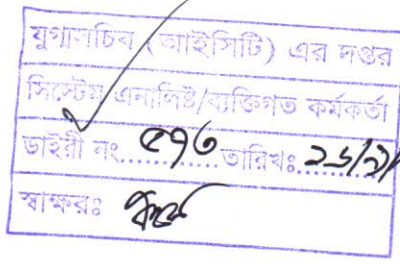 যুগ্মসচিব (আইসিটি) এর দপ্তর
সিস্টেম এনালিষ্ট/ব্যক্তিগত কর্মকর্তা
ডাইরী নং............ ৫৭৩ তারিখঃ............
স্বাক্ষরঃ